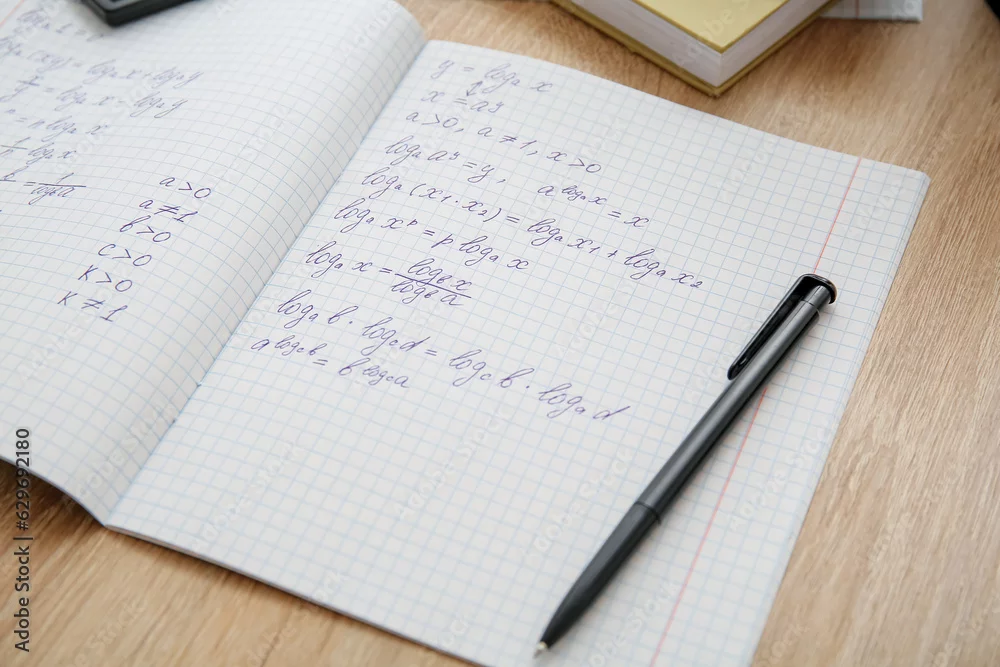 logₐ(xy) = logₐ x + logₐ y
= logₐ x - logₐ y
= n logₐ x
a > 0
a ≠ 1
b > 0
c > 0
k > 0
k ≠ 1
y = logₐ x
⇕
x = a^y
a > 0, a ≠ 1, x > 0
logₐ a^y = y, a^(logₐ x) = x
logₐ(x₁ · x₂) = logₐ x₁ + logₐ x₂
logₐ x^p = p logₐ x
logₐ x = log_b x / log_b a
logₐ b · log_c d = log_c b · logₐ d
a^(log_c b) = b^(log_c a)
Adobe Stock | #629692180